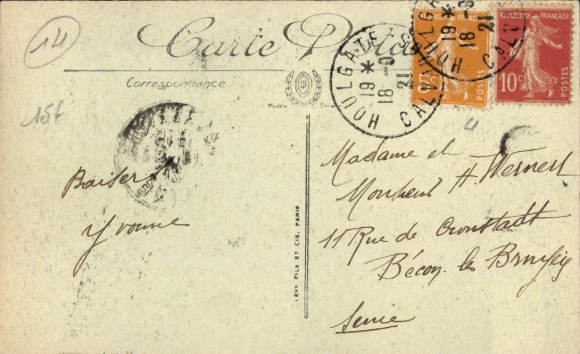 14
Carte Postale
Correspondance
15f
HOULGATE
19 * 18 -9 21
CALV
REPUBLIQUE FRANÇAISE
10c
POSTES
Baisers
Yvonne
LÉVY FILS ET CIE, PARIS
Madame et
Monsieur H. Wernert
11 Rue de Cronstadt
Bécon les Bruyères
Seine